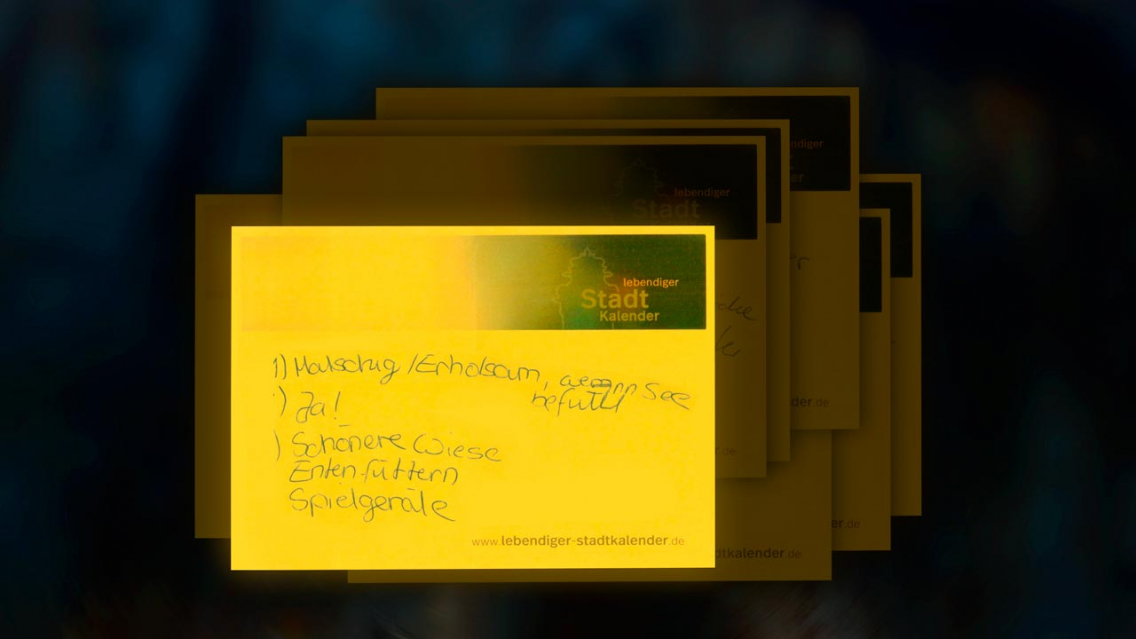 lebendiger
Stadt
Kalender
1) Matschig / Erholsam, wenn See
befüllt
) Ja!
) Schönere Wiese
Enten füttern
Spielgeräte
www.lebendiger-stadtkalender.de
lebendiger
Stadt
tkalender.de
der.de